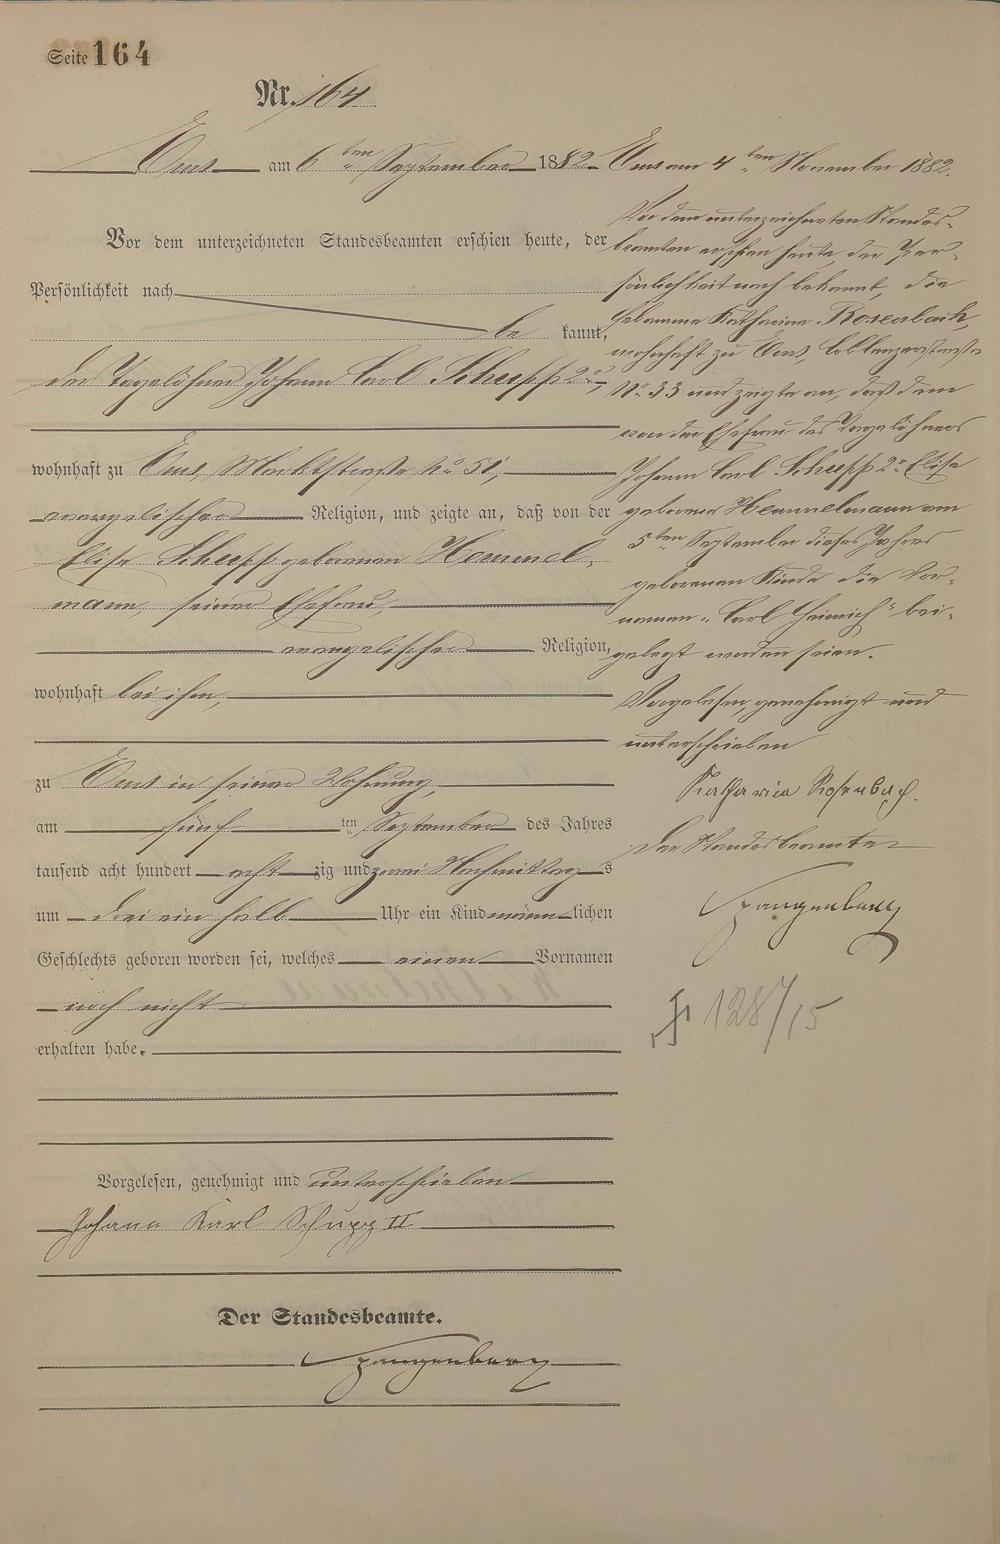 Seite 164
Nr. 164
Ems am 6ten September 1882
Vor dem unterzeichneten Standesbeamten erschien heute, der
Persönlichkeit nach
be kannt,
der Tagelöhner Johann Carl Schupp 2r,
wohnhaft zu Ems, Marktstraße No 51,
evangelischer Religion, und zeigte an, daß von der
Elise Schupp geborenen Hemmel-
mann, seiner Ehefrau,
evangelischer Religion,
wohnhaft bei ihm,
zu Ems in seiner Wohnung,
am fünften September des Jahres
tausend acht hundert achtzig und zwei Nachmittags
um drei ein halb Uhr ein Kind männlichen
Geschlechts geboren worden sei, welches einen Vornamen
noch nicht
erhalten habe.
Vorgelesen, genehmigt und unterschrieben
Johann Karl Schupp II
Der Standesbeamte.
Spangenberg
Ems am 4ten November 1882.
Vor dem unterzeichneten Standes-
beamten erschien heute, der Per-
sönlichkeit nach bekannt, die
Hebamme Katharina Rosenbach,
wohnhaft zu Ems, Coblenzerstraße
No. 33 und zeigte an, daß dem
von der Ehefrau des Tagelöhners
Johann Carl Schupp 2r Elise
geborene Hemmelmann am
5ten September dieses Jahres
geborenen Kinde die Vor-
namen "Carl Heinrich" bei-
gelegt worden seien.
Vorgelesen, genehmigt und
unterschrieben
Katharina Rosenbach.
Der Standesbeamte
Spangenberg
128/15